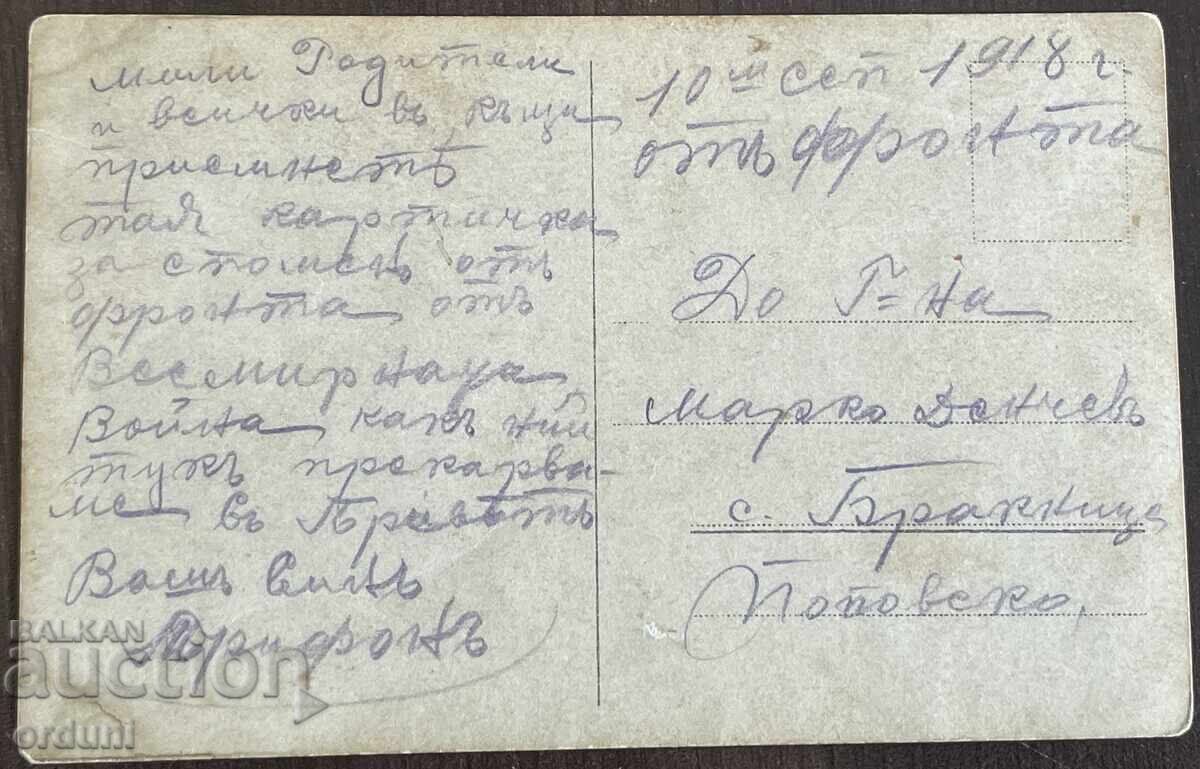 мили Родители
и всички въ къщи
приемнетѣ
тая картичка
за споменъ отъ
фронта отъ
Всемирната
Война какъ ний
тукъ прекарва-
ме въ
Вашъ Синъ
Трифонъ
10ий сеп 1918 г.
отъ фронта
До Г=на
Марко Денчевъ
с. Бракница
Поповско,
BALKAN
auction
orduni